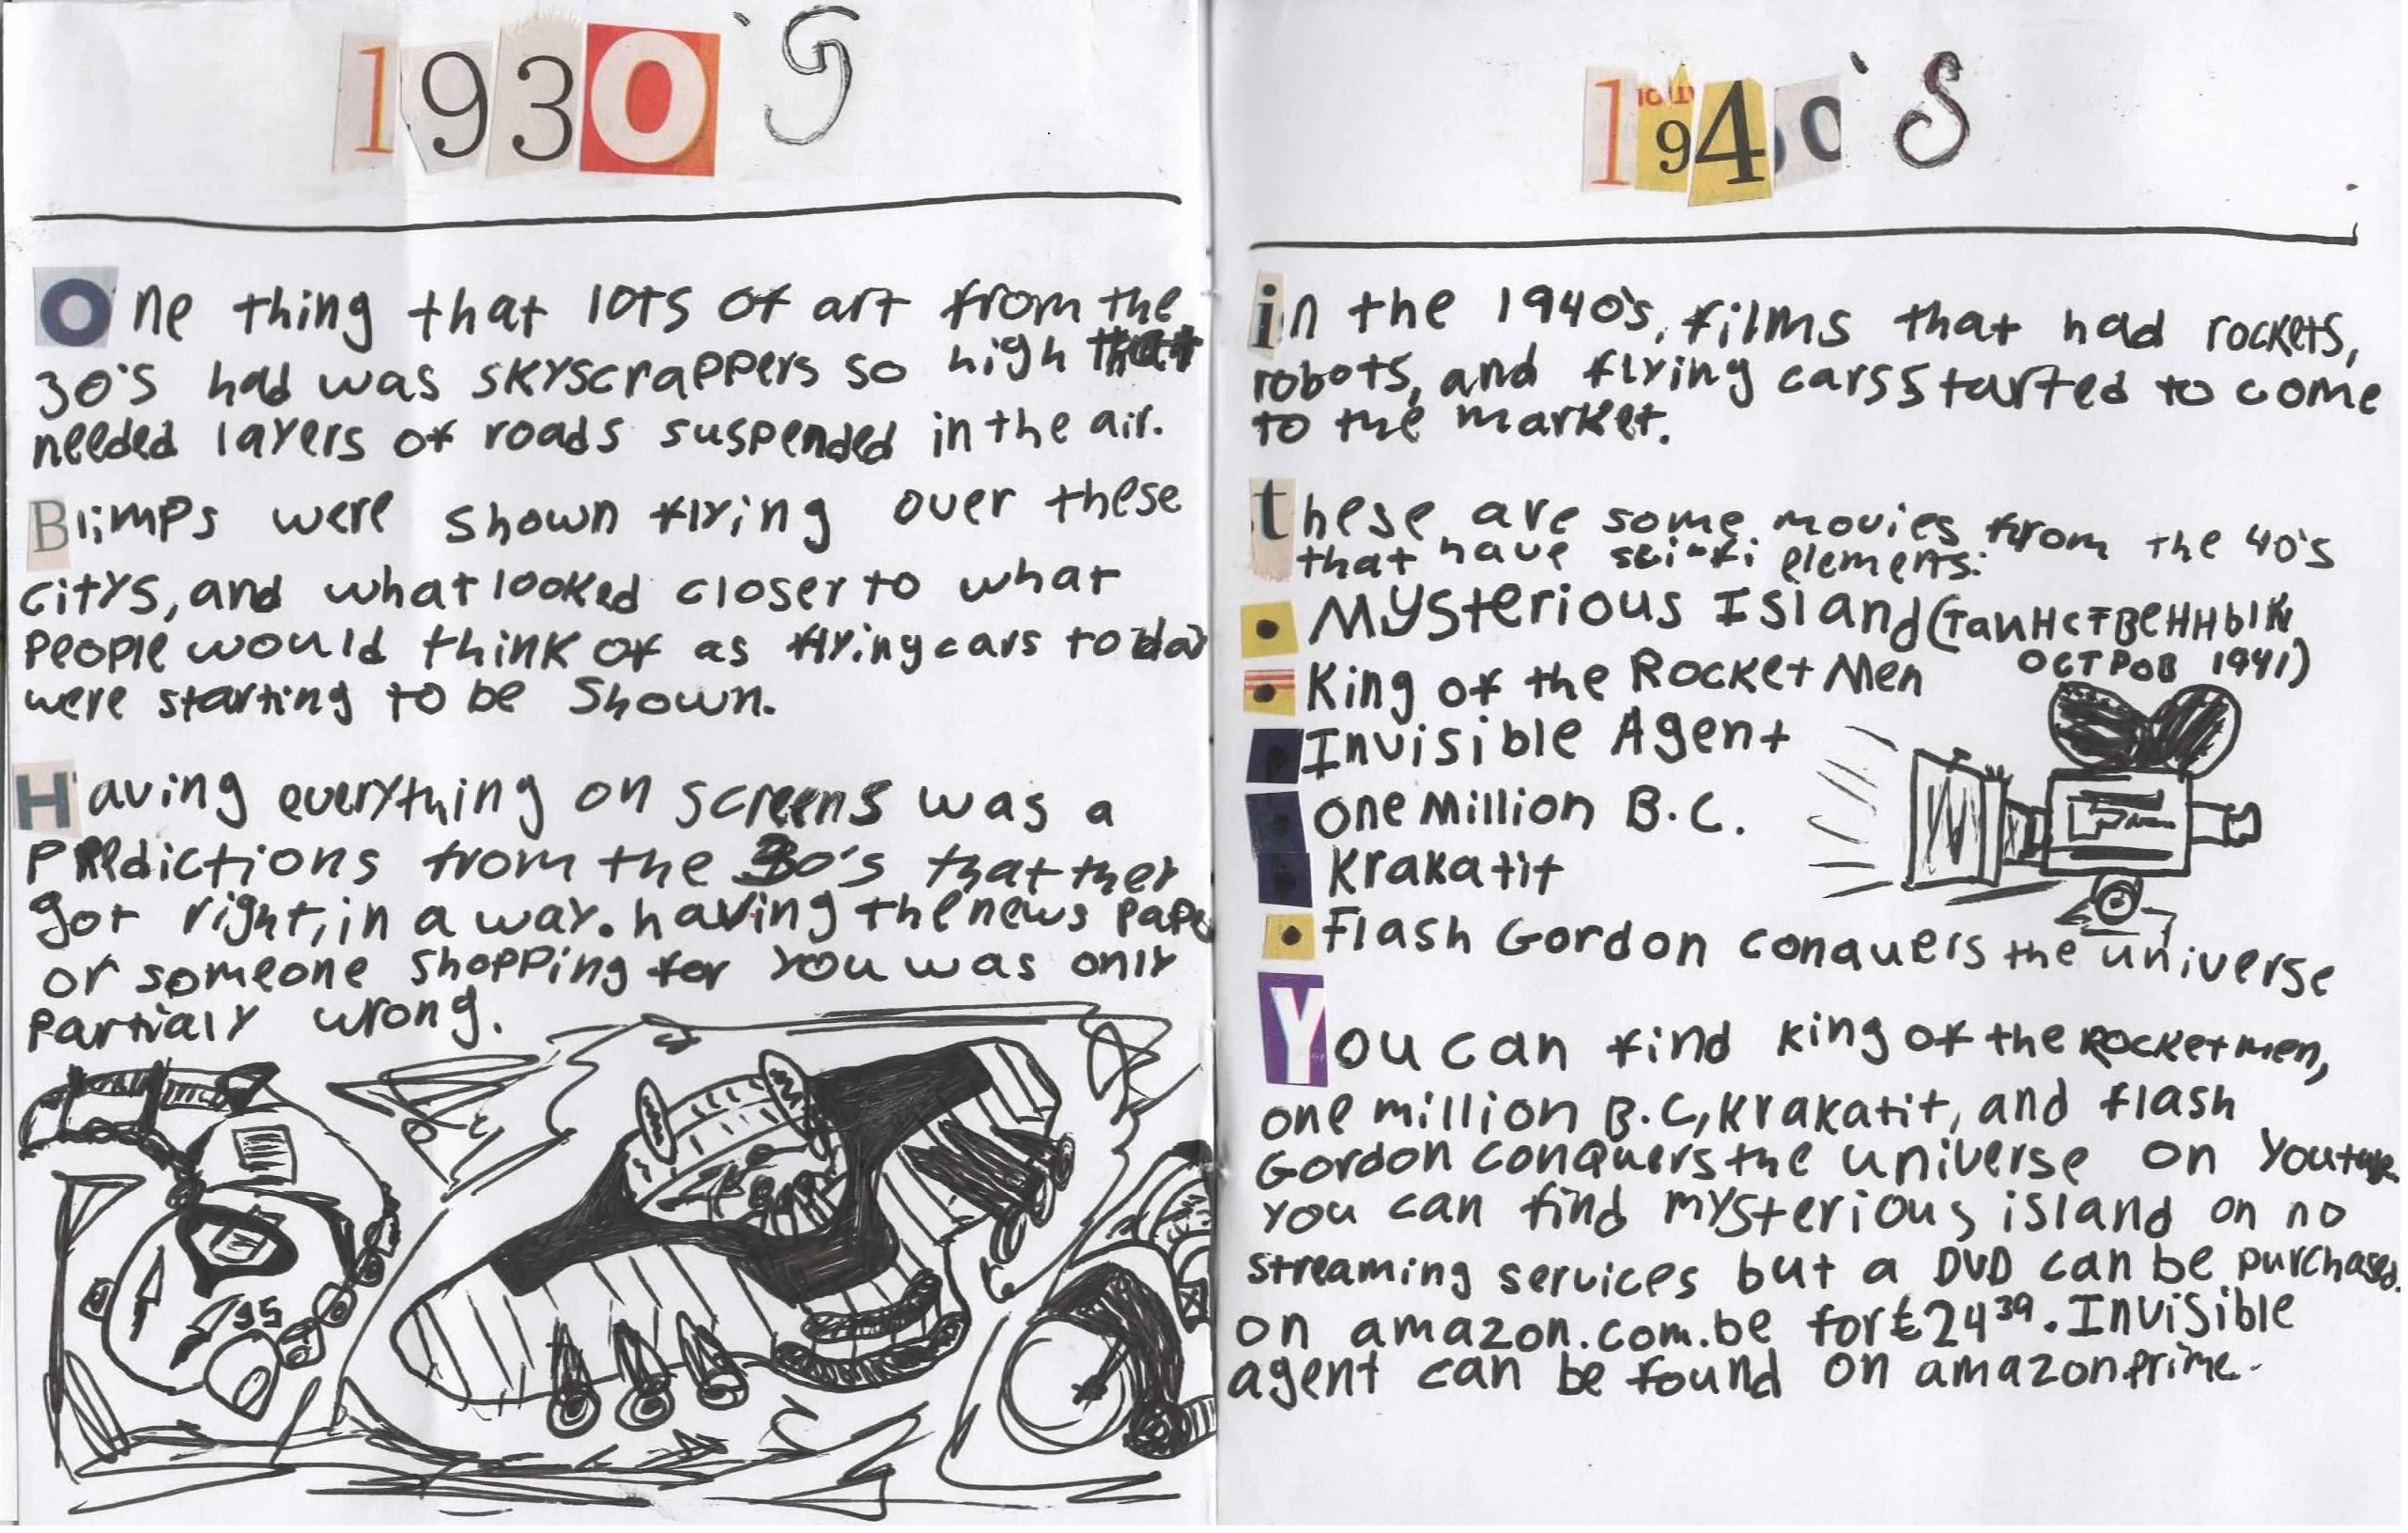 1930's
One thing that lots of art from the
30's had was skyscrappers so high that
needed layers of roads suspended in the air.
Blimps were shown flying over these
citys, and what looked closer to what
people would think of as flying cars today
were starting to be shown.
Having everything on screens was a
predictions from the 30's that they
got right, in a way. having the news pape
or someone shopping for you was only
partialy wrong.
95
1940's
in the 1940's, films that had rockets,
robots, and flying cars started to come
to the market.
these are some movies from the 40's
that have sci-fi elements:
• Mysterious Island (ТаиНСТВеННЫЙ
ОСТРОВ 1941)
• King of the Rocket Men
• Invisible Agent
• one Million B.C.
• Krakatit
• Flash Gordon conquers the universe
You can find king of the Rocket men,
one million B.C, Krakatit, and flash
Gordon conquers the universe on Youtube.
you can find mysterious island on no
streaming services but a DVD can be purchased.
on amazon.com.be for €24³⁹. Invisible
agent can be found on amazon prime.